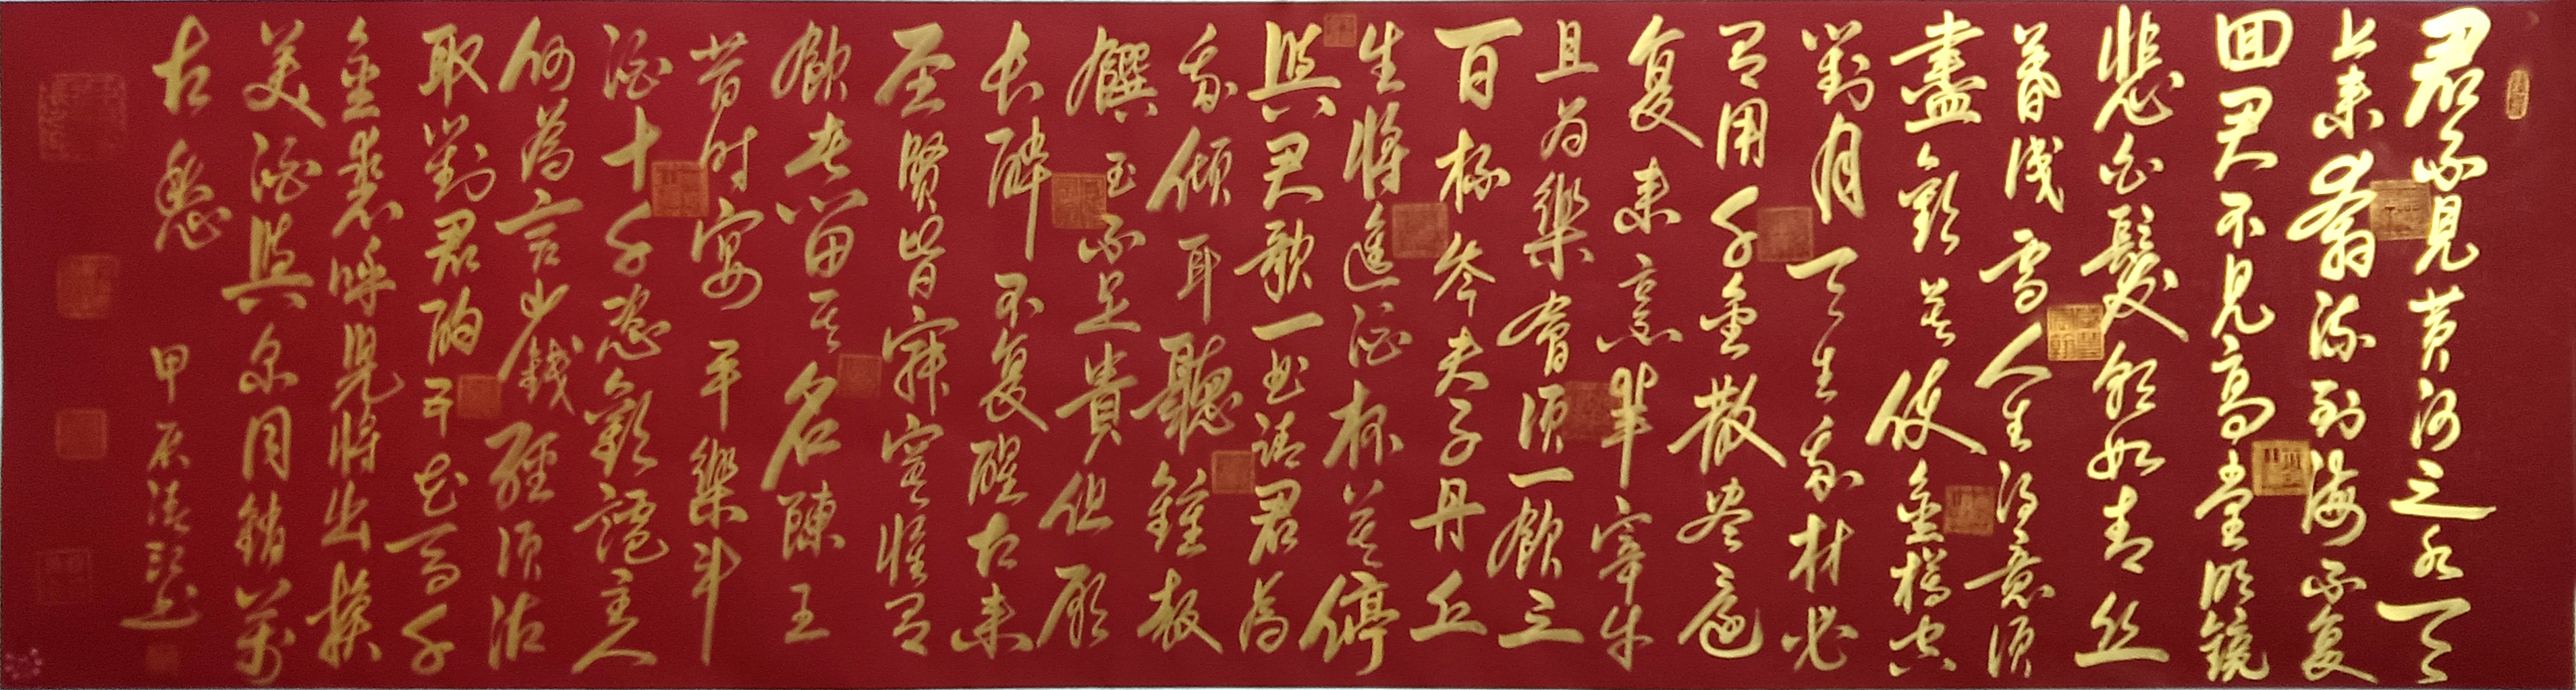 君不見黃河之水天
上来奔流到海不复
回君不見高堂明鏡
悲白髮朝如青丝
暮成雪人生得意須
盡歡莫使金樽空
對月天生我材必
有用千金散尽還
复来烹羊宰牛
且为樂會須一飲三
百杯岑夫子丹丘
生將進酒杯莫停
與君歌一曲請君為
我傾耳聽鐘鼓
饌玉不足貴但願
长醉不复醒古来
圣贤皆寂寞惟有
飲者留其名陳王
昔时宴平樂斗
酒十千恣歡謔主人
何為言少錢徑須沽
取對君酌五花馬千
金裘呼児將出換
美酒與尔同銷萬
古愁
甲辰